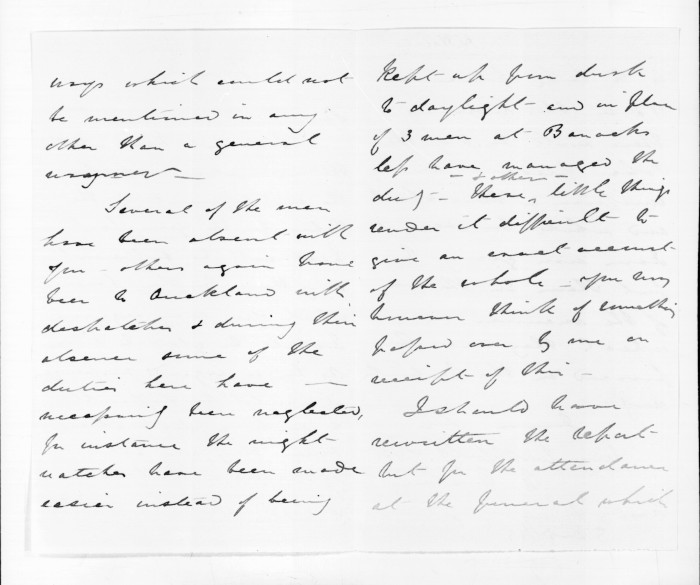 ways which could not
be mentioned in any
other than a general
manner —
Several of the men
have been absent with
you - others again have
been to Auckland with
despatches & during their
absence some of the
duties here have —
necessarily been neglected,
for instance the night
watches have been made
easier instead of being
kept up from dusk
to daylight and in place
of 3 men at Barracks
less have managed the
duty - These - & other - little things
render it difficult to
give an exact account
of the whole - you may
however think of something
passed over by me on
receipt of this -
I should have
rewritten the report
but for the attendance
at the funeral which